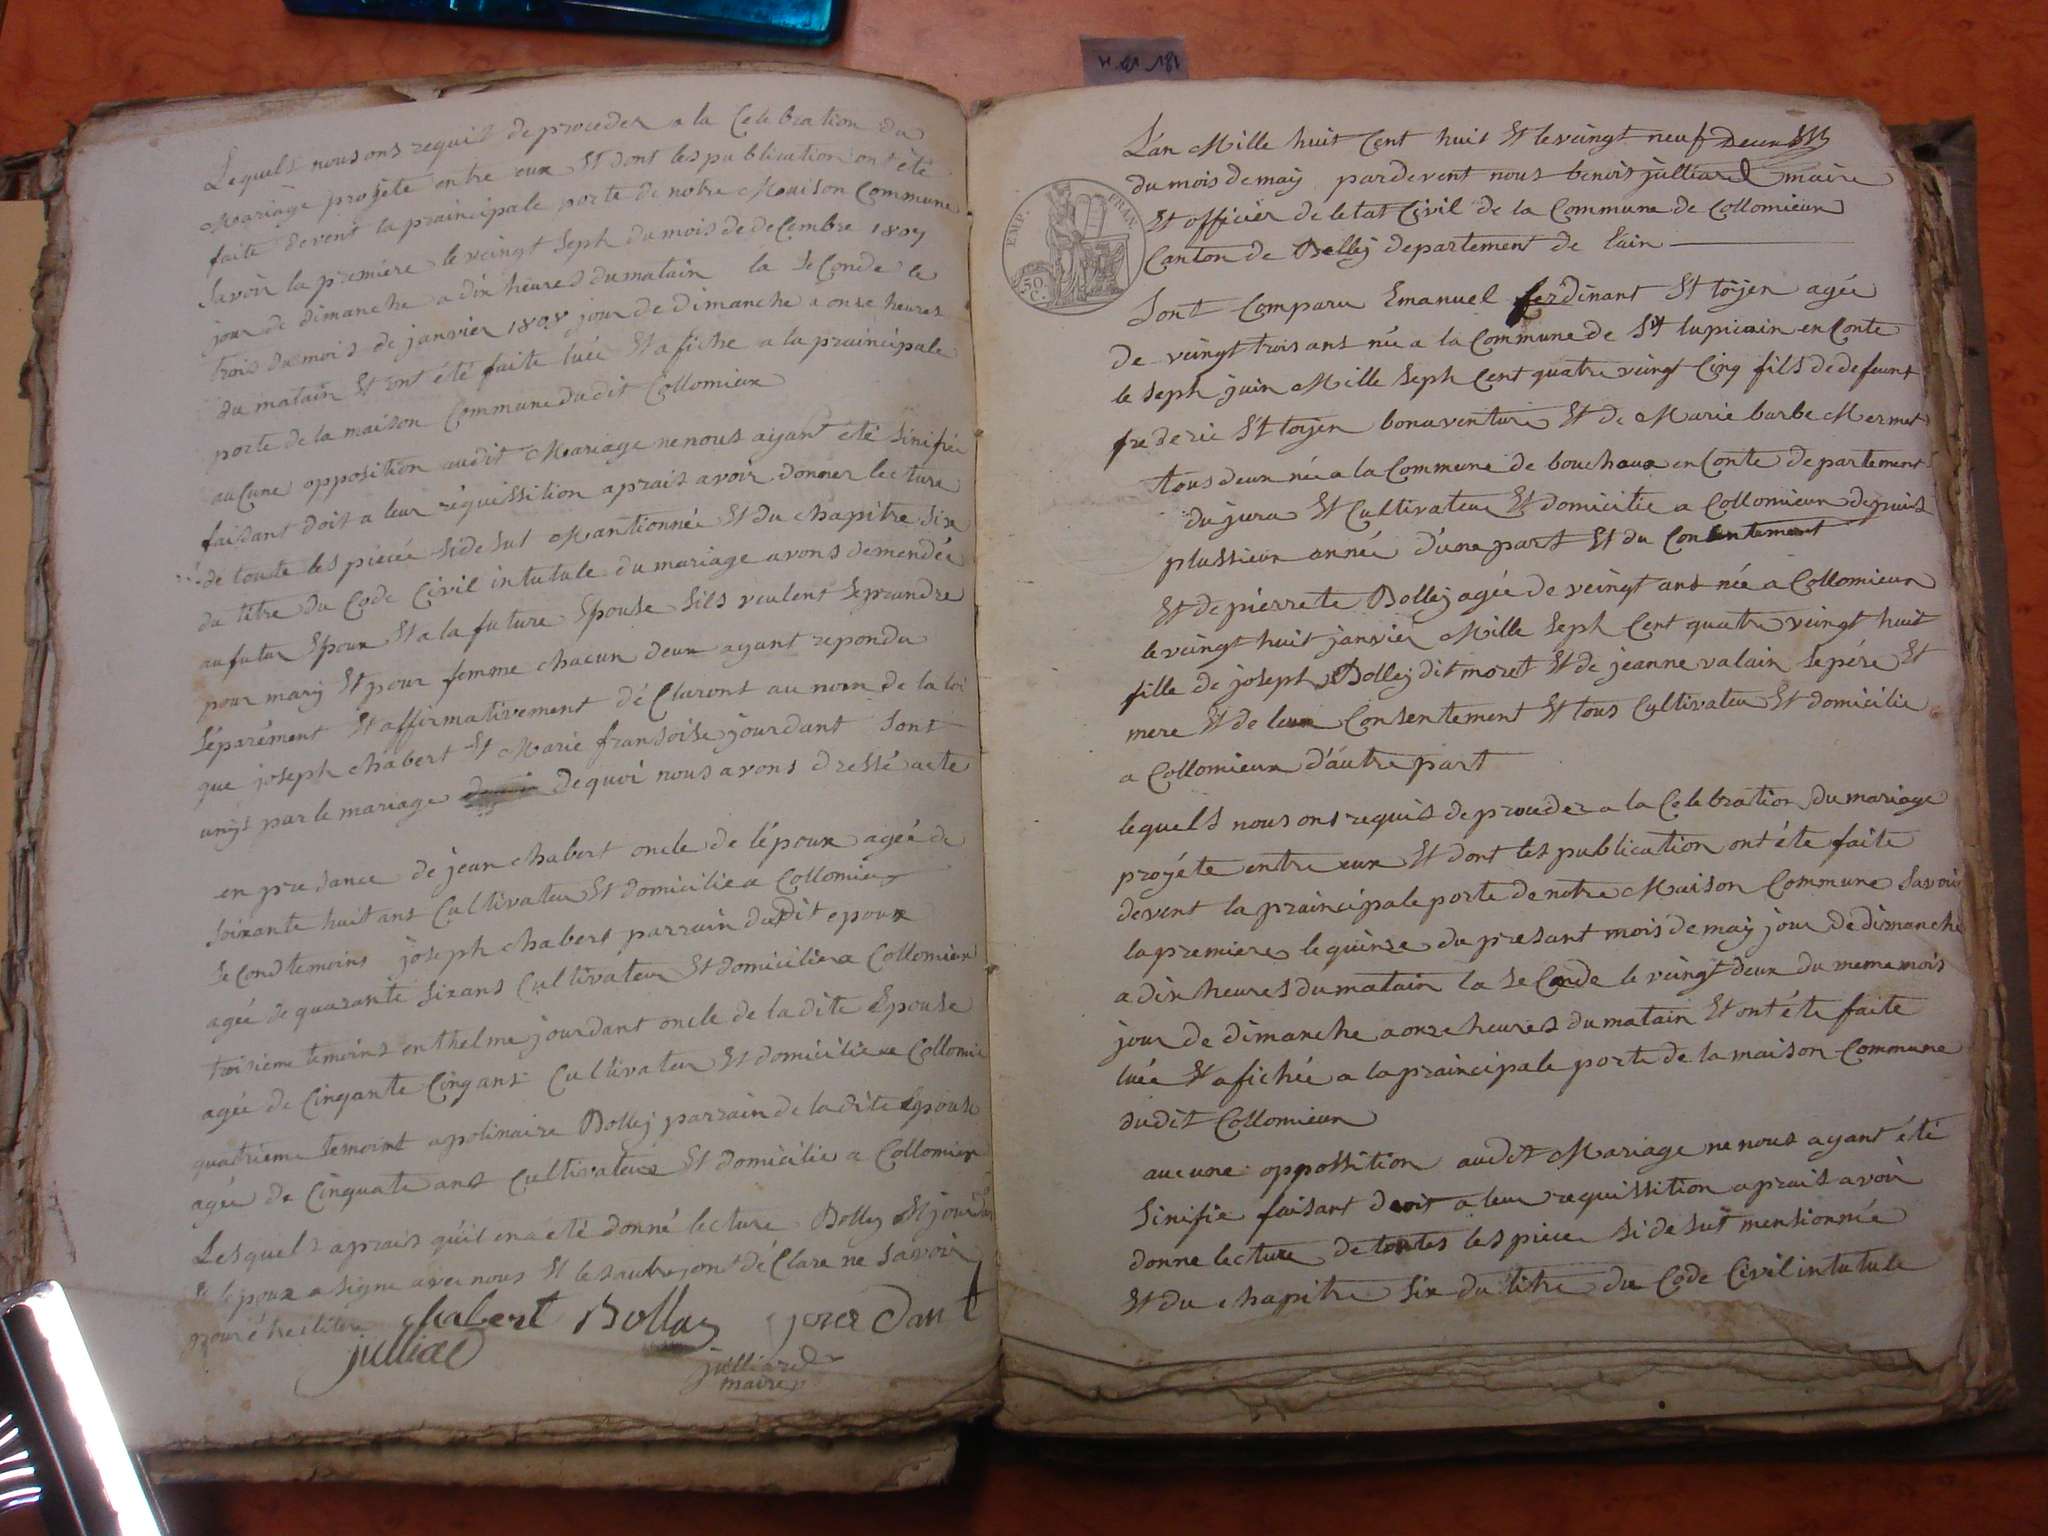 Lequels nous ons requit de proceder a la Celebration du
Mariage projete entre eux Et dont les publication ont été
faite devent la praincipale porte de notre Maison Commune
savoir la premiere le veingt seph du mois de deCembre 1807
jour de dimanche a dix heures du matain la seConde le
trois du mois de janvier 1808 jour de dimanche a onse heures
du matain Et ont été faite luée Et afiche a la praincipale
porte de la maison Commune dudit Collomieux
auCune opposition audit Mariage ne nous ayant été sinifiée
faisant doit a leur réquissition aprais avoir donner lecture
de toute les pieceé side sut Mantionnée Et du Chapitre six
du titre du Code Civil intutule du mariage avons demendée
au futur Epoux Et a la future Epouse sils veulent seprandre
pour mary Et pour femme chacun deux ayant repondu
séparément Et affirmativement déClaront au nom de la loi
que joseph chabert Et Marie fransoise jourdant sont
unys par le mariage de quoi nous avons dressé acte
en presance de jean chabert oncle de lépoux agée de
soixante huit ans Cultivateur Et domicilie a Collomieux
seCond temoins joseph chabert parrain dudit epoux
agée de quarante six ans Cultivateur Et domicilie a Collomieux
troisieme temoins enthelme jourdant oncle de la dite Epouse
agée de Cinqante Cinq ans Cultivateur Et domicilie a Collomie
quatrieme temoint apolinaire Bolley parrain de la dite Epouse
agée de Cinquate ans Cultivateur Et domicilie a Collomieux
Lesquels aprais quil en a été donné lecture Bolley Et jourdan
Et lépoux a signe avec nous Et les autre jont déClare ne savoir
pour étre
chabert Bolley jourdant
julliard
julliard
maire
EMP. FRAN.
50
C.
Lan Mille huit Cent huit Et le veingt neuf
du mois de may pardevent nous benois julliard maire
Et officier de letat Civil de la Commune de Collomieux
Canton de Belley departement de lain
Sont Comparu Emanuel ferdinant Et toyen agée
de veingt trois ans née a la Commune de St lupicain en Conte
le seph juin Mille seph Cent quatre veingt Cinq fils de defeunt
frederic Et toyen bonaventure Et de Marie barbe Mermet
tous deux née a la Commune de bouchoux en Conte departement
du jura Et Cultivateur Et domicilie a Collomieux depuis
plussieur année dune part Et du Consentement
Et de pierrete Bolley agée de veingt ans née a Collomieux
le veingt huit janvier Mille seph Cent quatre veingt huit
fille de joseph Bolley dit moret Et de jeanne valain se pére Et
mere Et de leur Consentement Et tous Cultivateur Et domicilie
a Collomieux dáutre part
lequels nous ont requis de proceder a la Celebration du mariage
projéte entre eux Et dont les publication ont éte faite
devent la praincipale porte de notre Maison Commune savoir
la premiere le quinse du presant mois de may jour de dimanche
a dix heures du matain la seConde le veingt deux du meme mois
jour de dimanche a onse heures du matain Et ont éte faite
luée Et afichée a la praincipale porte de la maison Commune
dudit Collomieux
aucune oppossition audit Mariage ne nous ayant été
sinifie faisant doit a leur requissition aprais avoir
donne lecture de toutes les piece si de sut mensionnée
Et du chapitre six du titre du Code Civil intutule